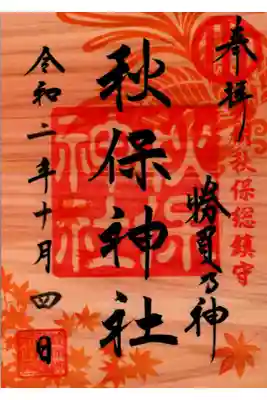 奉拝
秋保総鎮守
勝負乃神
秋保神社
令和二年十月四日
秋保神社